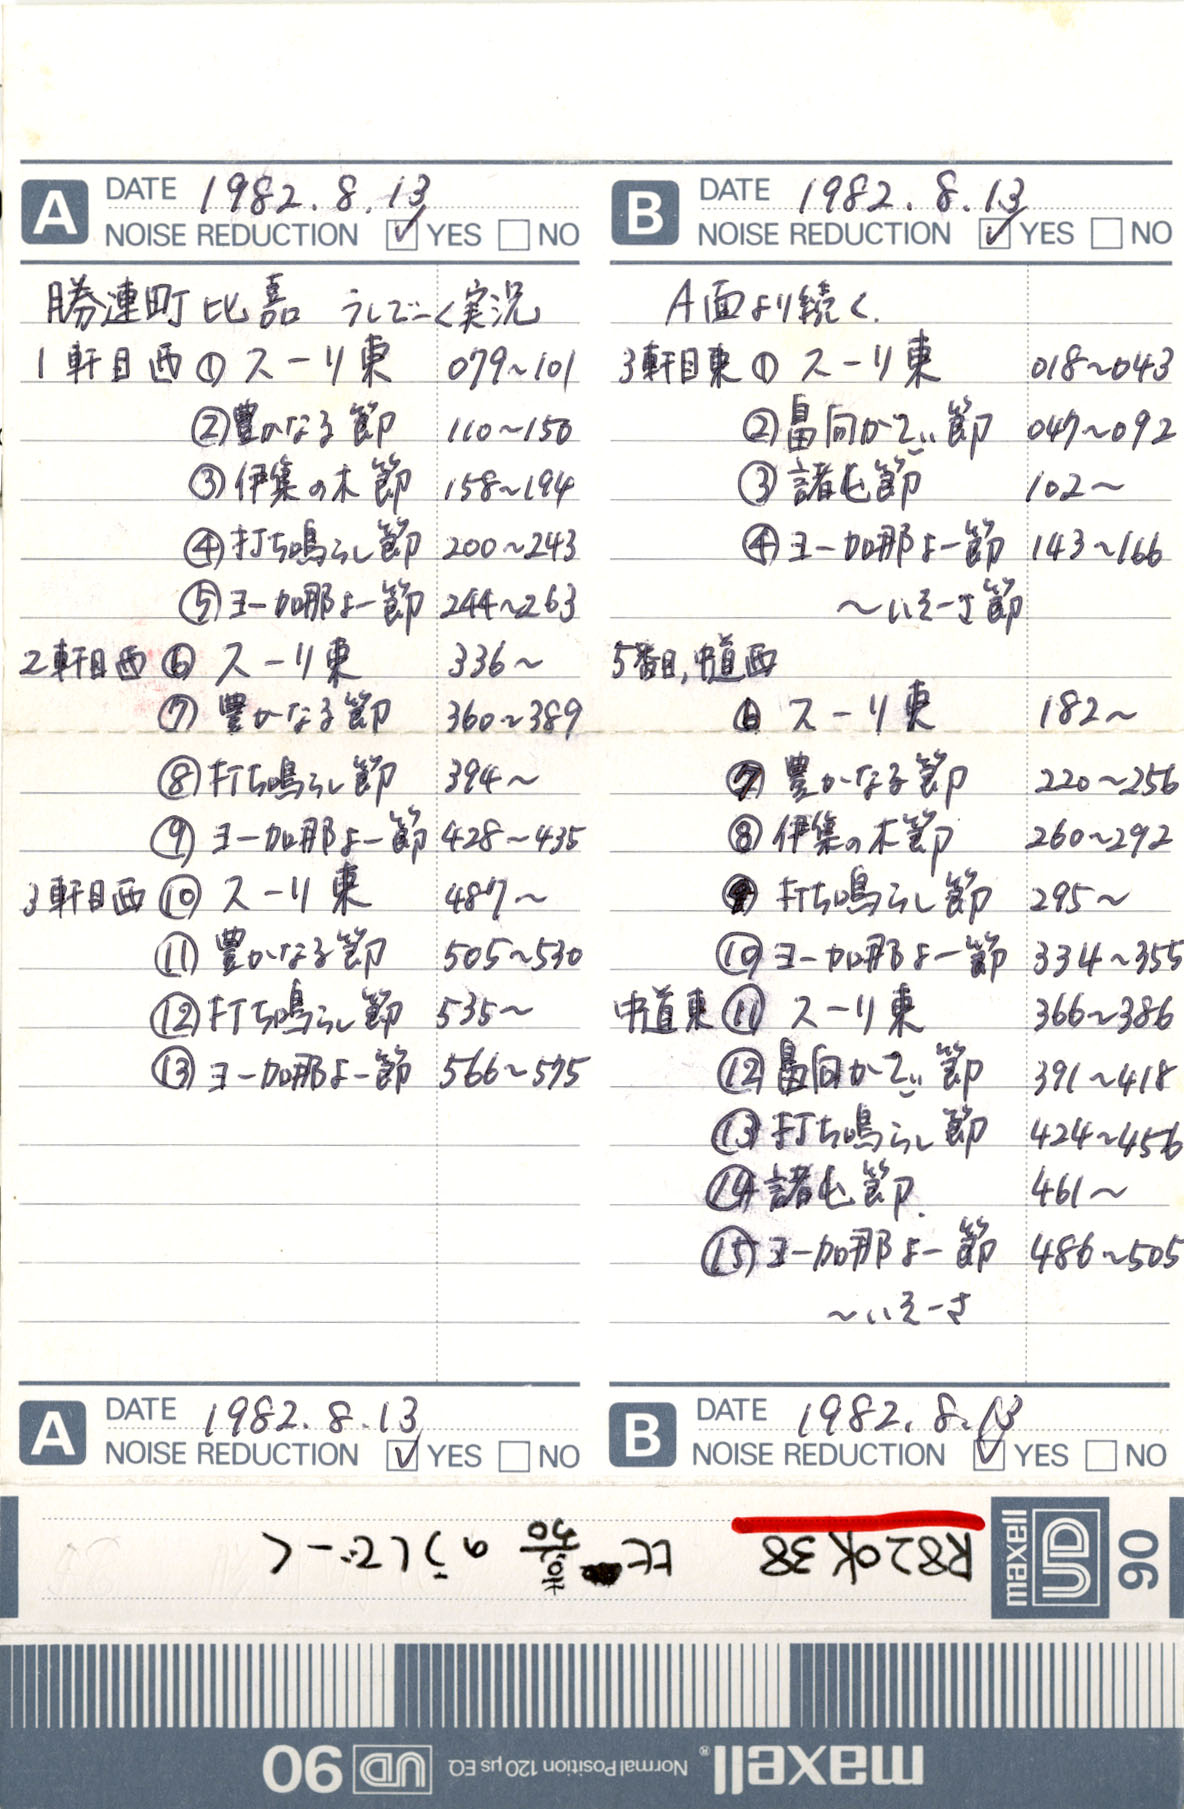 A DATE 1982.8.13
NOISE REDUCTION ☑ YES ☐ NO
勝連町 比嘉 うしでーく実況
1軒目西 ① スーリ東 079~101
② 豊かなる節 110~150
③ 伊集の木節 158~194
④ 打ち鳴らし節 200~243
⑤ ヨー加那よー節 244~263
2軒目西 ⑥ スーリ東 336~
⑦ 豊かなる節 360~389
⑧ 打ち鳴らし節 394~
⑨ ヨー加那よー節 428~435
3軒目西 ⑩ スーリ東 487~
⑪ 豊かなる節 505~530
⑫ 打ち鳴らし節 535~
⑬ ヨー加那よー節 566~575
A DATE 1982.8.13
NOISE REDUCTION ☑ YES ☐ NO
B DATE 1982.8.13
NOISE REDUCTION ☑ YES ☐ NO
A面より続く.
3軒目東 ① スーリ東 018~043
② 畠向かでぃ節 047~092
③ 諸屯節 102~
④ ヨー加那よー節 143~166
~いえーさ節
5番目,中道西
⑥ スーリ東 182~
⑦ 豊かなる節 220~256
⑧ 伊集の木節 260~292
⑨ 打ち鳴らし節 295~
⑩ ヨー加那よー節 334~355
中道東 ⑪ スーリ東 366~386
⑫ 畠向かでぃ節 391~418
⑬ 打ち鳴らし節 424~456
⑭ 諸屯節. 461~
⑮ ヨー加那よー節 486~505
~いえーさ
B DATE 1982.8.13
NOISE REDUCTION ☑ YES ☐ NO
R82OK38 比嘉のうしでーく
maxell UD 90
maxell® Normal Position 120μs EQ UD 90